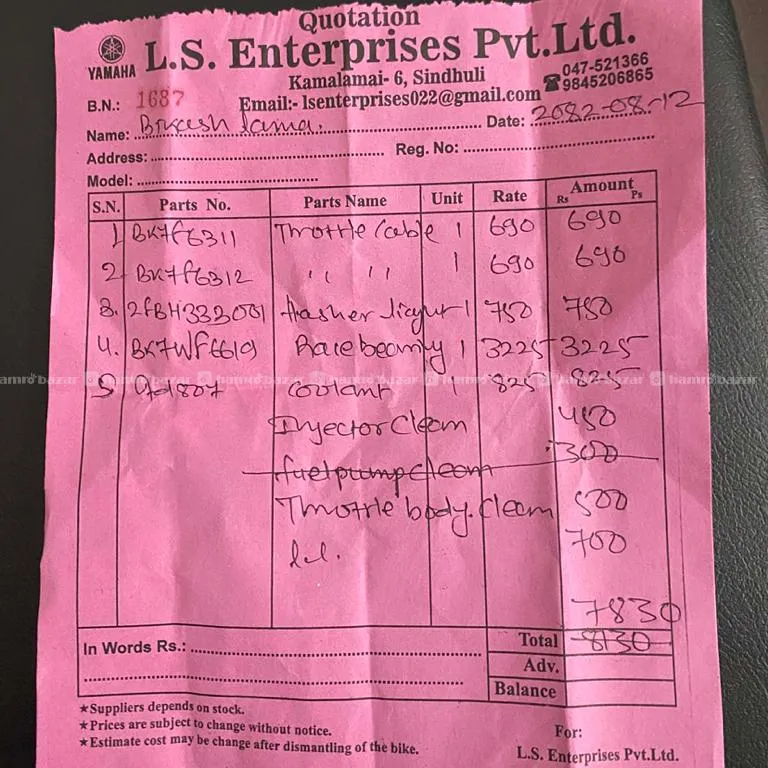 Quotation
YAMAHA L.S. Enterprises Pvt.Ltd.
Kamalamai- 6, Sindhuli
047-521366
9845206865
B.N.: 1687 Email:- lsenterprises022@gmail.com
Name: Lama. Date: 2082-08-12
Address: Reg. No:
Model:
S.N. Parts No. Parts Name Unit Rate Amount Rs Ps
1 BK7F6311 Throttle Cable 1 690 690
2 BK7F6312 " " 1 690 690
3. flasher 1 750 750
4. 1 3225 3225
5 Coolant 1 825 825
Injector Cleam 450
fuelpump cleam 300
Throttle body. Cleam 500
700
7830
In Words Rs.: Total 8130
Adv.
Balance
★Suppliers depends on stock.
★Prices are subject to change without notice.
★Estimate cost may be change after dismantling of the bike.
For:
L.S. Enterprises Pvt.Ltd.
hamro bazar hamro bazar hamro bazar hamro bazar